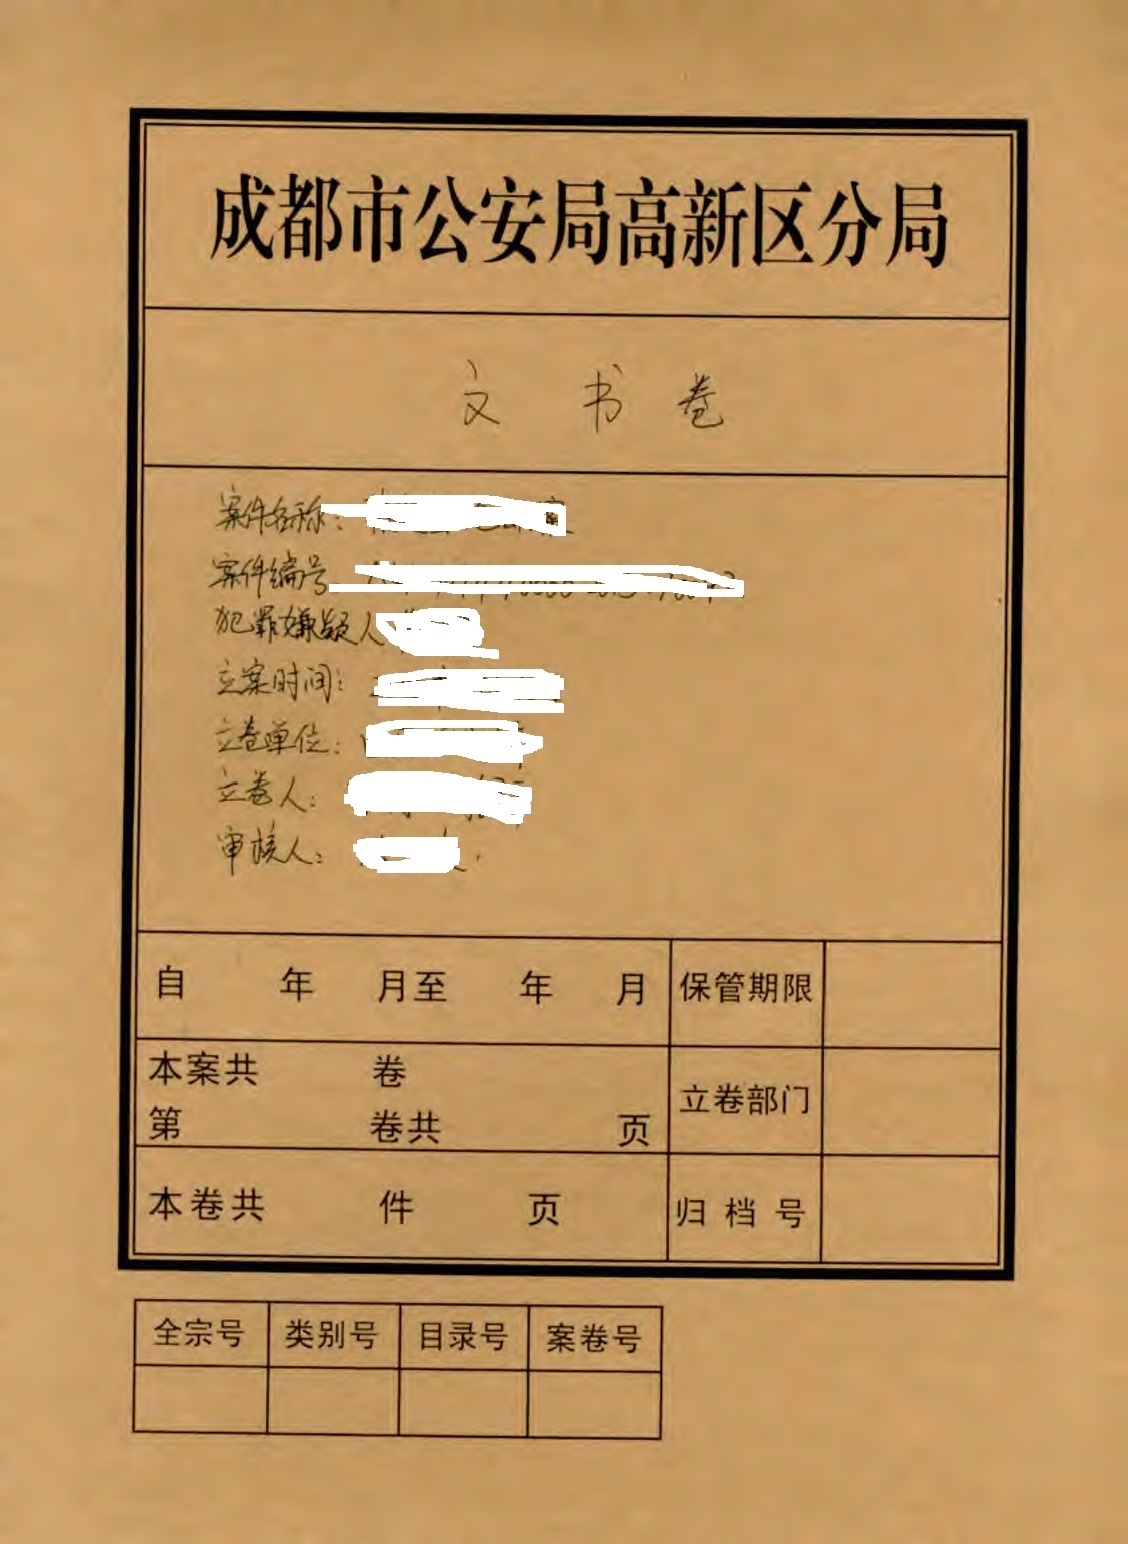 成都市公安局高新区分局
文书卷
案件名称：
案件编号
犯罪嫌疑人
立案时间：
立卷单位：
立卷人：
审核人：
自 年 月至 年 月 保管期限
本案共 卷
第 卷共 页 立卷部门
本卷共 件 页 归档号
全宗号 类别号 目录号 案卷号